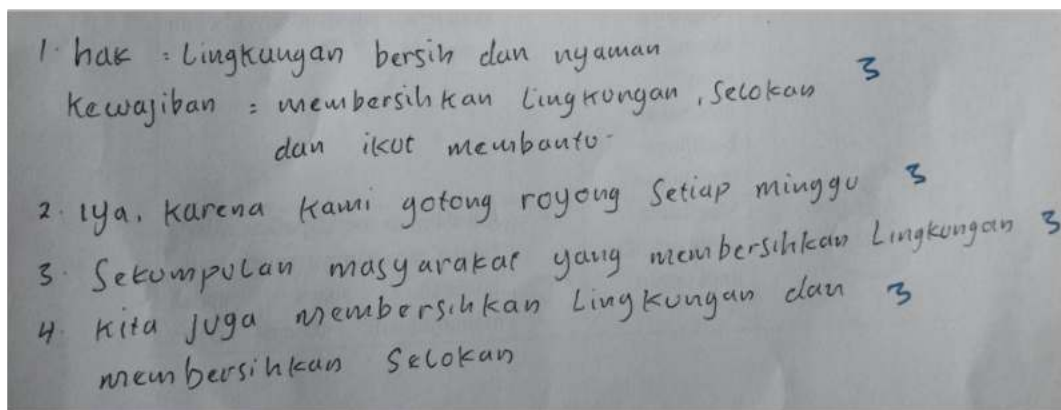 1. hak : Lingkungan bersih dan nyaman
Kewajiban : membersihkan Lingkungan, Selokan 3
dan ikut membantu.
2. iya, karena Kami gotong royong Setiap minggu 3
3. Sekumpulan masyarakat yang membersihkan Lingkungan 3
4. Kita juga membersihkan Lingkungan dan 3
membersihkan Selokan